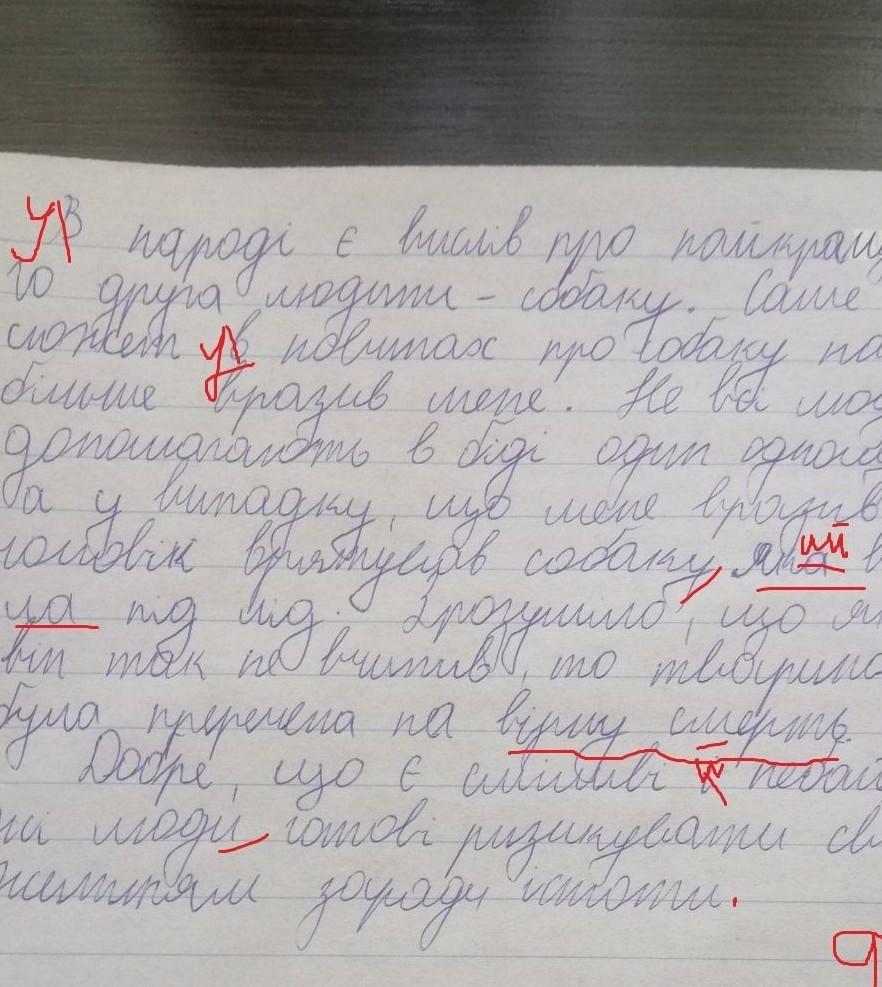 У В народі є вислів про найкращо
го друга людини - собаку. Саме
сюжет у в новинах про собаку на
більше вразив мене. Не всі люд
допомагають в біді один одном
а у випадку, що мене вразив
чоловік врятував собаку, яка ий в
ла під лід. Зрозуміло, що як
він так не вчинив, то тварина
була приречена на вірну смерть.
Добре, що є сміливі й небай
жі люди, готові ризикувати св
життям заради істоти.
9